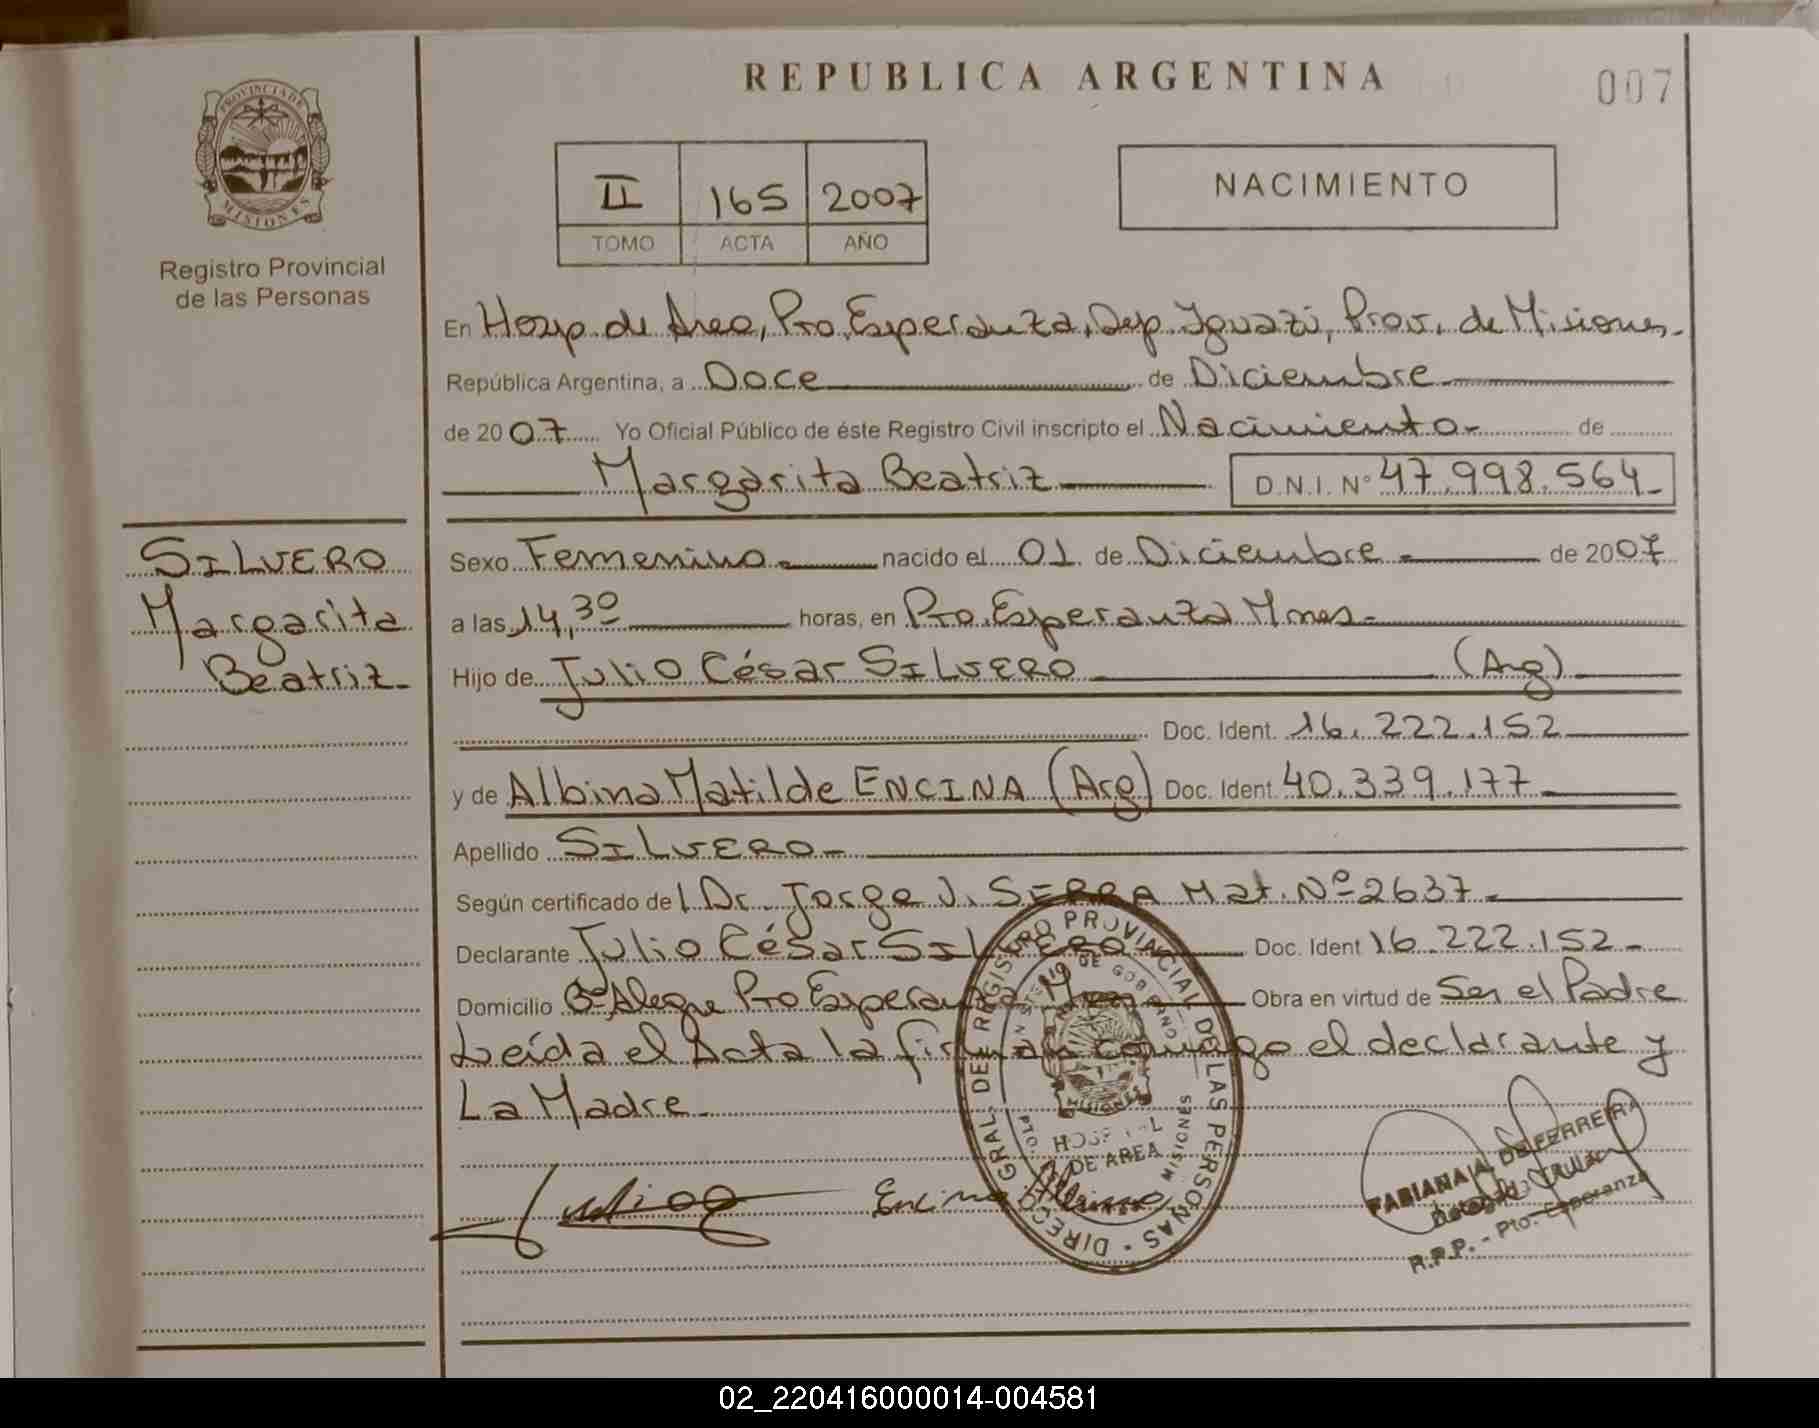 REPUBLICA ARGENTINA
007
PROVINCIA DE MISIONES
Registro Provincial
de las Personas
II 165 2007
TOMO ACTA AÑO
NACIMIENTO
En Hosp. de Area, Pto. Esperanza, Dep. Iguazú, Prov. de Misiones.-
República Argentina, a Doce de Diciembre
de 2007 Yo Oficial Público de éste Registro Civil inscripto el Nacimiento.- de
Margarita Beatriz D.N.I. Nº 47.998.564.-
SILVERO
Margarita
Beatriz.-
Sexo Femenino.- nacido el 01 de Diciembre.- de 2007
a las 14,30 horas, en Pto. Esperanza Mnes.-
Hijo de Julio César SILVERO (Arg)
Doc. Ident. 16.222.152
y de Albina Matilde ENCINA (Arg) Doc. Ident 40.339.177.-
Apellido SILVERO.-
Según certificado del Dr. Jorge J. SERRA Mat. Nº 2637.-
Declarante Julio César SILVERO Doc. Ident 16.222.152.-
Domicilio Bº Alegre Pto Esperanza Mnes Obra en virtud de Ser el Padre
Leída el Acta la firman conmigo el declarante y
La Madre.-
DIRECC. GRAL. DE REGISTRO PROVINCIAL DE LAS PERSONAS
MINISTERIO DE GOBIERNO
MISIONES
HOSPITAL
DE AREA
MISIONES
Encina Albina
FABIANA A. DE FERREIRA
Delegada Titular
R.P.P. - Pto. Esperanza
02_220416000014-004581